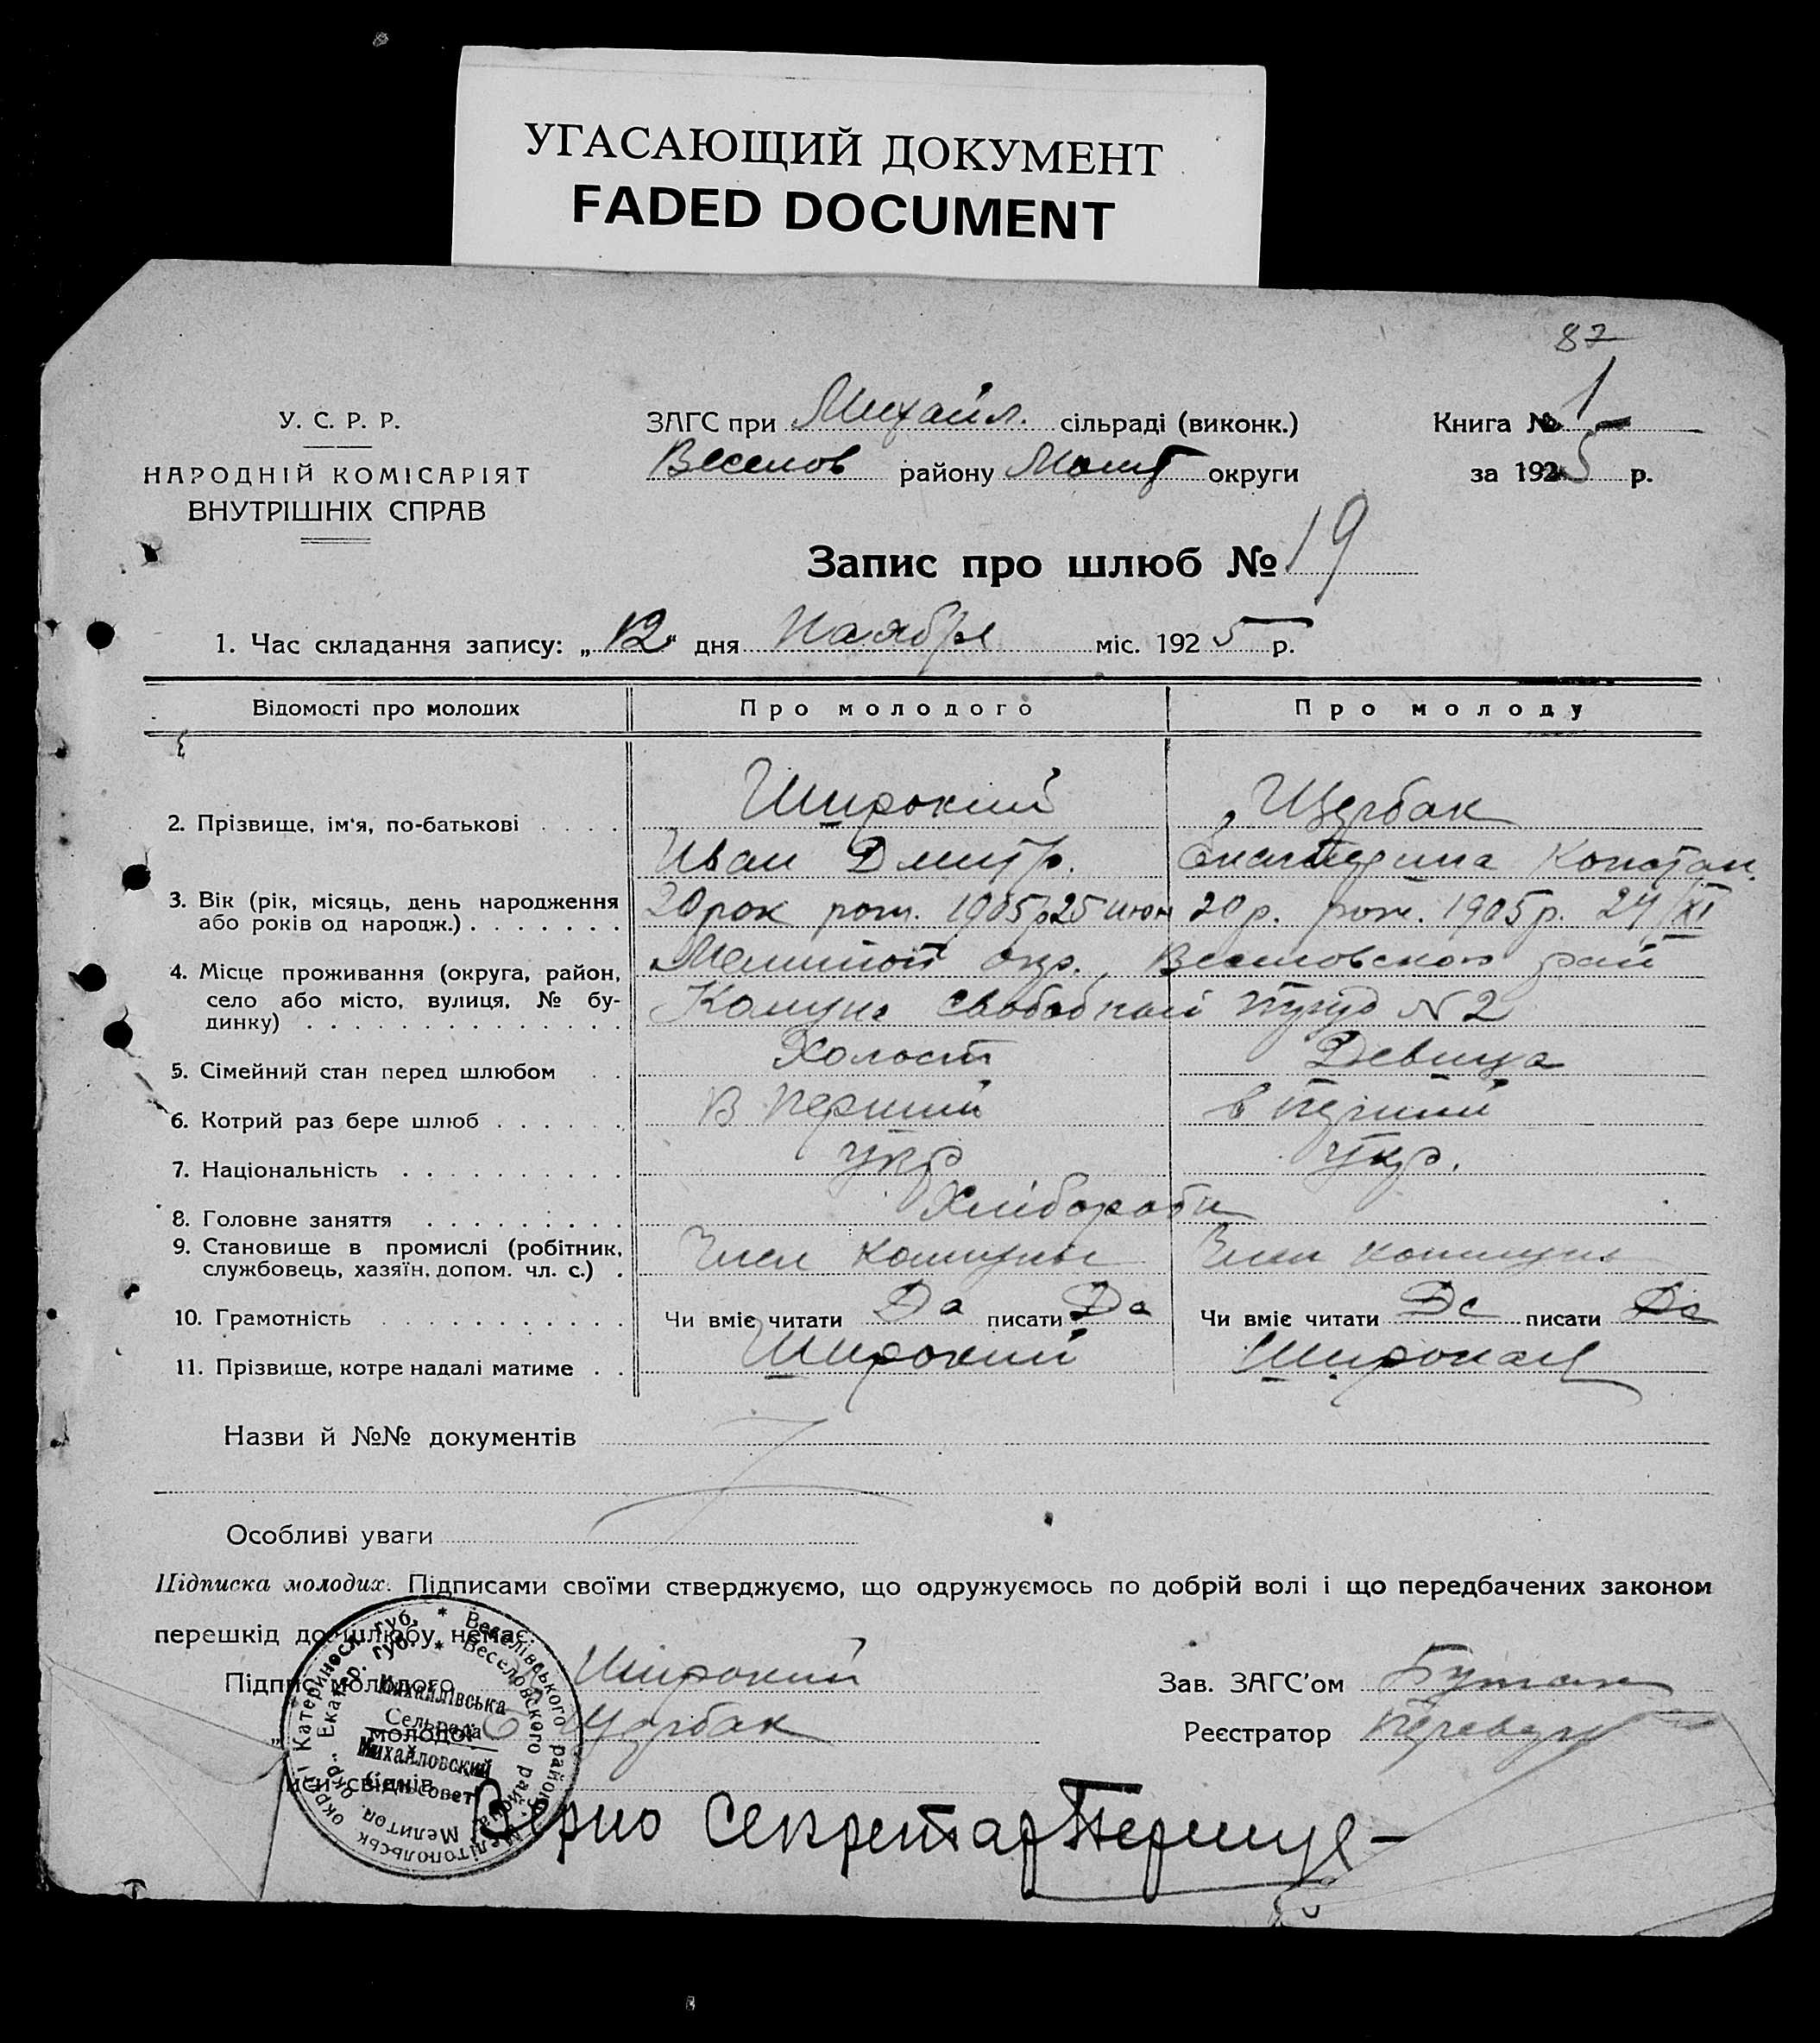 УГАСАЮЩИЙ ДОКУМЕНТ
FADED DOCUMENT
87
У. С. Р. Р.
НАРОДНІЙ КОМІСАРІЯТ
ВНУТРІШНІХ СПРАВ
ЗАГС при Михайл. сільраді (виконк.)
Веселов району округи
Книга № 1
за 1925 р.
Запис про шлюб № 19
1. Час складання запису: „12“ дня Ноября міс. 1925 р.
Відомості про молодих Про молодого Про молоду
2. Прізвище, ім'я, по-батькові . . . . Широкий Щербак
Иван Дмитр. Екатерина Констан.
3. Вік (рік, місяць, день народження або років од народж.) . . . . . . . 20 рок рож. 1905 р 25 июн 20 р. рож. 1905 р. 24/XI
4. Місце проживання (округа, район, село або місто, вулиця, № будинку) . . . . . . . . . . . . . . Мелитоп окр., Веселовского рай
Комуна свободный труд N 2
5. Сімейний стан перед шлюбом . . Холост Девица
6. Котрий раз бере шлюб . . . . . . В первий в перший
7. Національність . . . . . . . . . . укр Укр.
8. Головне заняття . . . . . . . . . Хлібороби
9. Становище в промислі (робітник, службовець, хазяїн, допом. чл. с.) . Член комуны Член комуны
10. Грамотність . . . . . . . . . . . Чи вміє читати Да писати Да Чи вміє читати Да писати Да
11. Прізвище, котре надалі матиме . . Широкий Широкая
Назви й №№ документів
Особливі уваги
Підписка молодих. Підписами своїми стверджуємо, що одружуємось по добрій волі і що передбачених законом
перешкід до шлюбу немає.
Підпис молодого Широкий
„ молодої Е Щербак
писи свідків
Зав. ЗАГС'ом
Реєстратор
Верно Секретар
Катеринос. губ. * Веселівського району, Мелітопольськ окр.
Екатер. губ. * Веселовского района Мелитоп. окр.
Михайлівська
Сельрада
Михайловский
Сельсовет